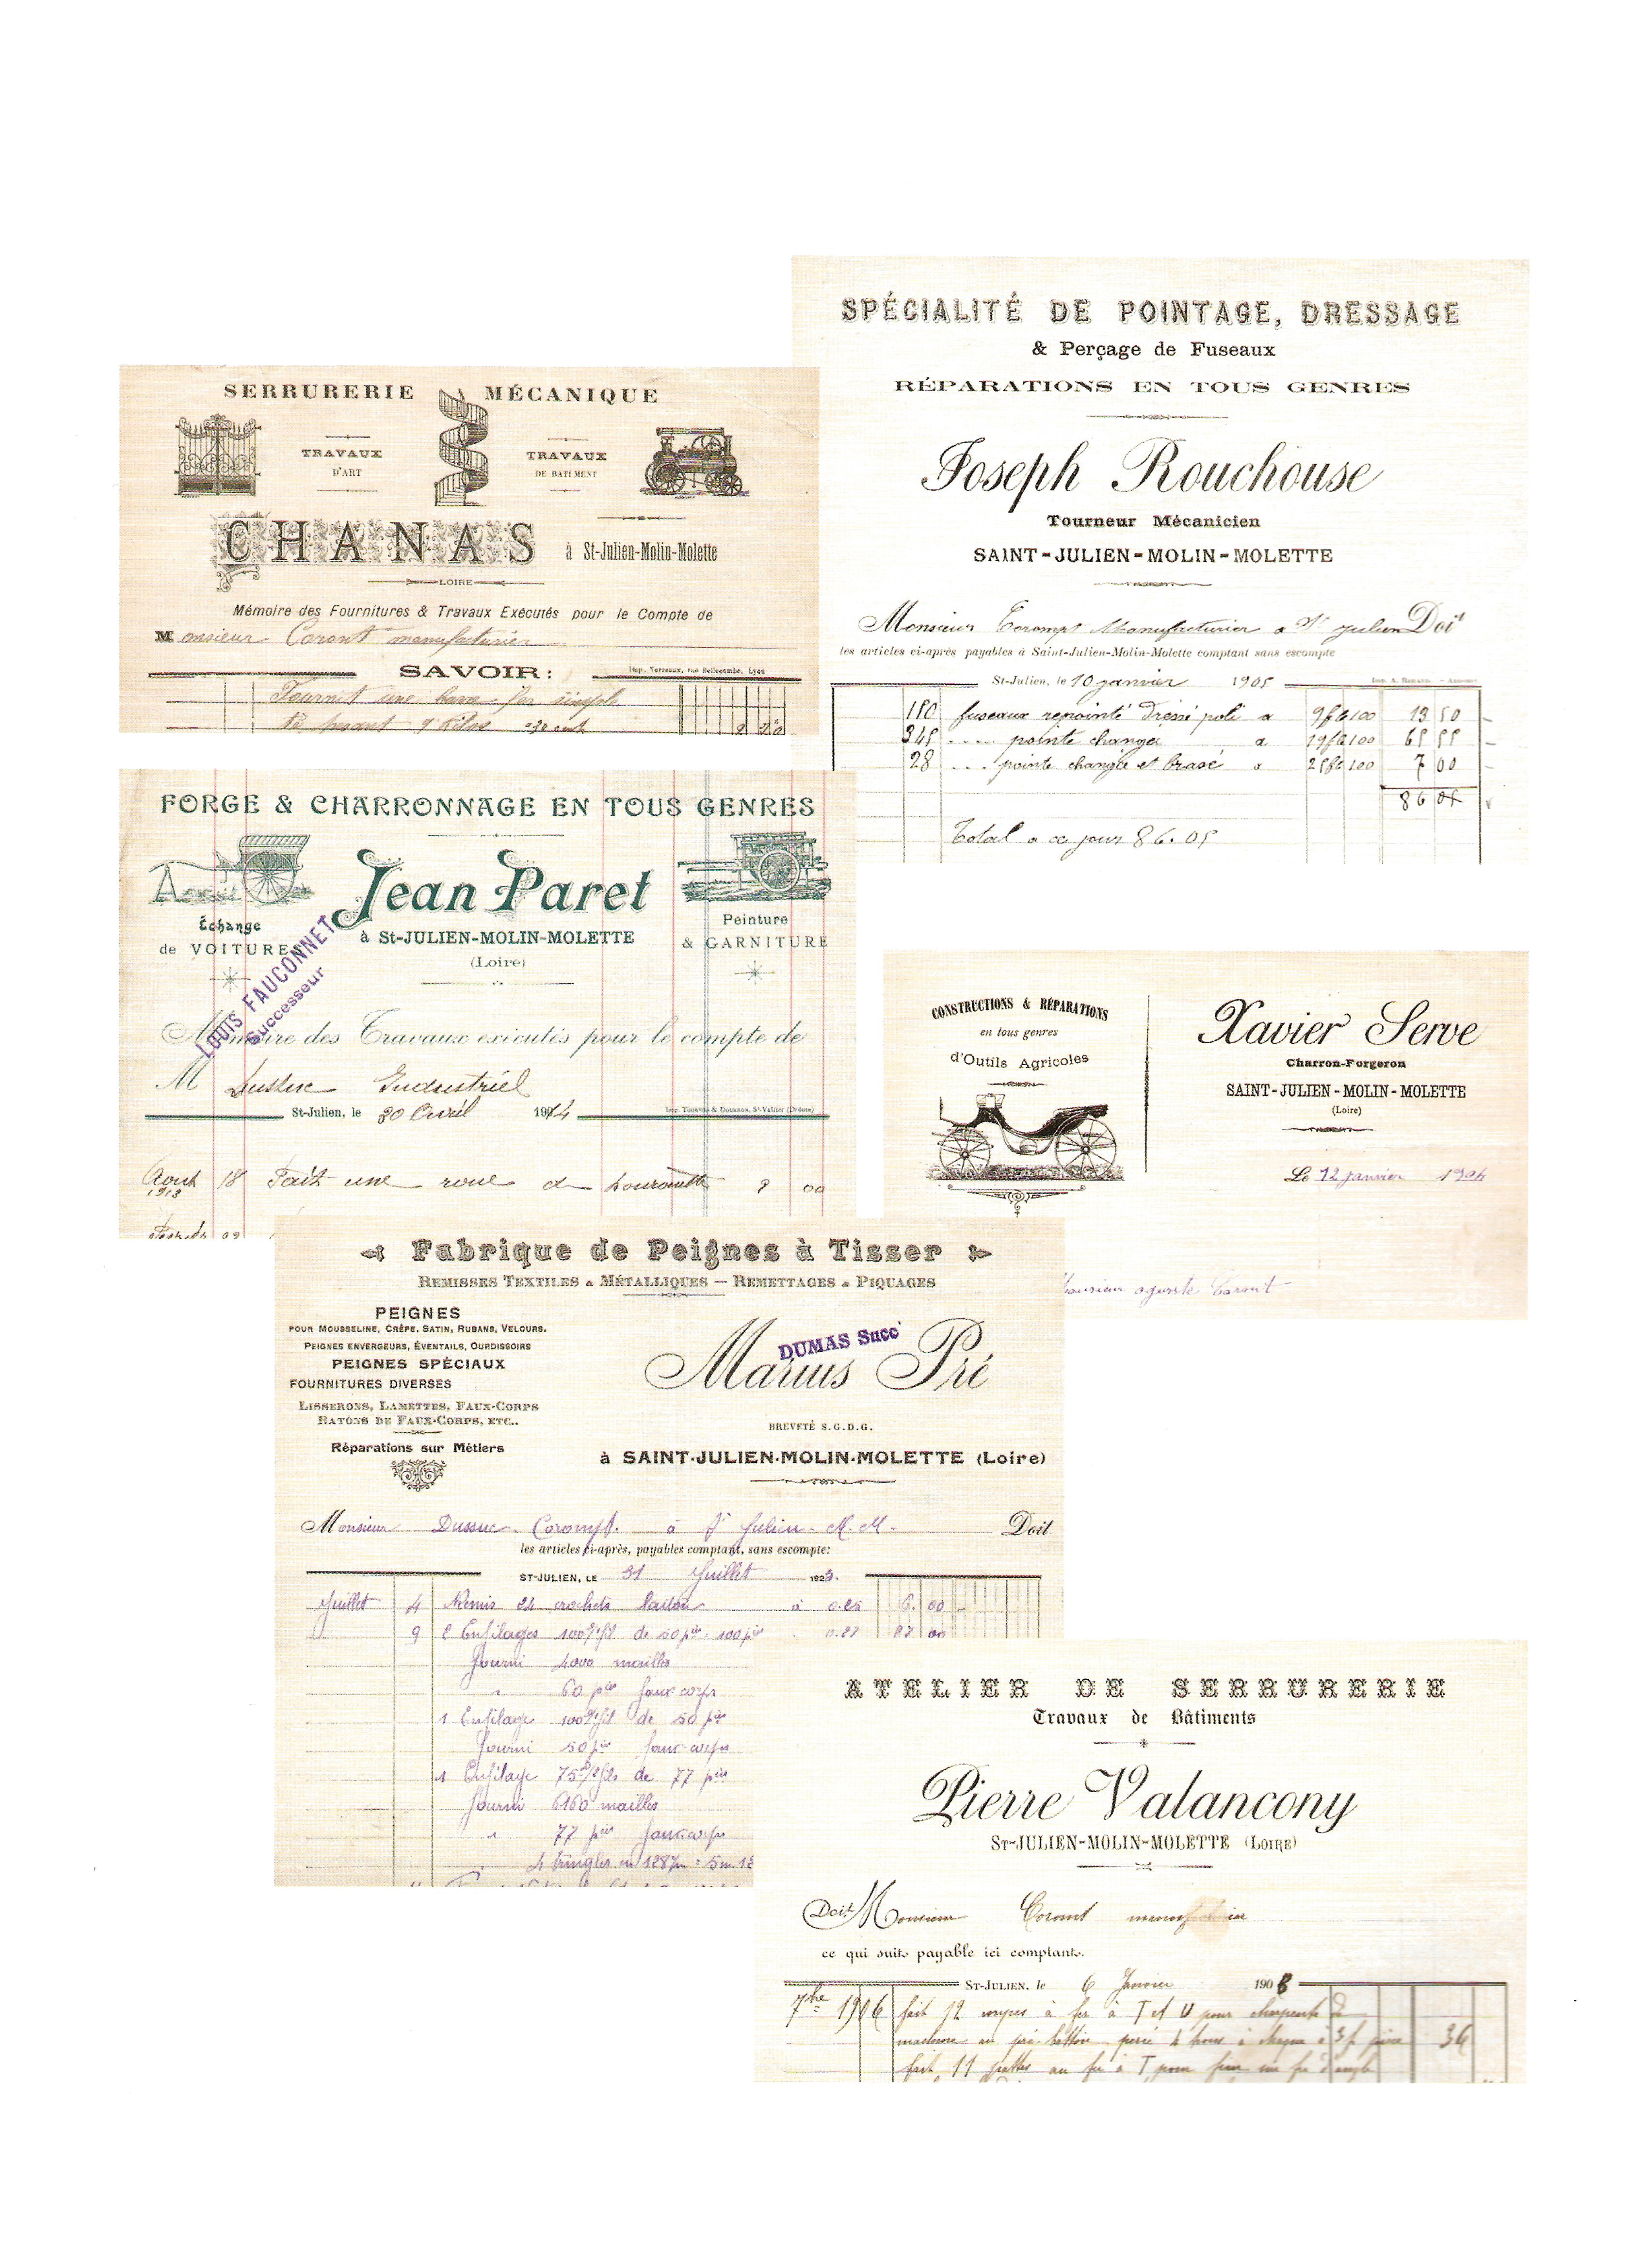 SERRURERIE MÉCANIQUE
TRAVAUX
D'ART
TRAVAUX
DE BATIMENT
CHANAS à St-Julien-Molin-Molette
LOIRE
Mémoire des Fournitures & Travaux Exécutés pour le Compte de
Monsieur Coront manufacturier
SAVOIR:
Imp. Terreaux, rue Bellecombe, Lyon
Fournit une barre fer
pesant 9 kilos
SPÉCIALITÉ DE POINTAGE, DRESSAGE
& Perçage de Fuseaux
RÉPARATIONS EN TOUS GENRES
Joseph Rouchouse
Tourneur Mécanicien
SAINT-JULIEN-MOLIN-MOLETTE
Monsieur Corompt Manufacturier a St Julien Doit
les articles ci-après payables à Saint-Julien-Molin-Molette comptant sans escompte
St-Julien, le 10 janvier 1905
150 fuseaux repointé Dressé poli a 9f le 100 13 50
345 " pointe changée a 19f le 100 65 55
28 " pointe changée et brasé a 25f le 100 7 00
86 05
Total a ce jour 86.05
FORGE & CHARRONNAGE EN TOUS GENRES
Jean Paret
Échange
de VOITURES
à St-JULIEN-MOLIN-MOLETTE
(Loire)
Peinture
& GARNITURE
LOUIS FAUCONNET
Successeur
Mémoire des Travaux exécutés pour le compte de
M Dussuc Industriel
St-Julien, le 30 Avril 1914
Aout 1913 18 Fait une roue de brouette 9 00
CONSTRUCTIONS & RÉPARATIONS
en tous genres
d'Outils Agricoles
Xavier Serve
Charron-Forgeron
SAINT-JULIEN-MOLIN-MOLETTE
(Loire)
Le 12 janvier 1904
Monsieur Auguste Coront
Fabrique de Peignes à Tisser
REMISSES TEXTILES & MÉTALLIQUES — REMETTAGES & PIQUAGES
PEIGNES
POUR MOUSSELINE, CRÊPE, SATIN, RUBANS, VELOURS.
PEIGNES ENVERGEURS, ÉVENTAILS, OURDISSOIRS
PEIGNES SPÉCIAUX
FOURNITURES DIVERSES
LISSERONS, LAMETTES, FAUX-CORPS
BATONS DE FAUX-CORPS, ETC..
Réparations sur Métiers
DUMAS Succr
Marius Pré
BREVETÉ S.G.D.G.
à SAINT-JULIEN-MOLIN-MOLETTE (Loire)
Monsieur Dussuc-Corompt. à St Julien-M.M. Doit
les articles ci-après, payables comptant, sans escompte:
ST-JULIEN, LE 31 Juillet 1923.
Juillet 4 Remis 24 crochets laiton à 0.25 6. 00
9 2 Enfilages de 50 pces 100 pces 0.87 87 00
Fourni 4000 mailles
" 60 pces faux-corps
1 Enfilage de 50 pces
Fourni 50 pces faux-corps
1 Enfilage de 77 pces
Fourni 6160 mailles
" 77 pces faux-corps
4 tringles
ATELIER DE SERRURERIE
Travaux de Bâtiments
Pierre Valancony
ST-JULIEN-MOLIN-MOLETTE (LOIRE)
Doit Monsieur Coront manufacturier
ce qui suit payable ici comptant.
ST-JULIEN, le 6 Janvier 1908
7bre 1906 fait 12 coupes à fer à T et U pour charpente
percé 4 trous à chaque à 3f pièce 36
fait 11 pattes au fer à T pour